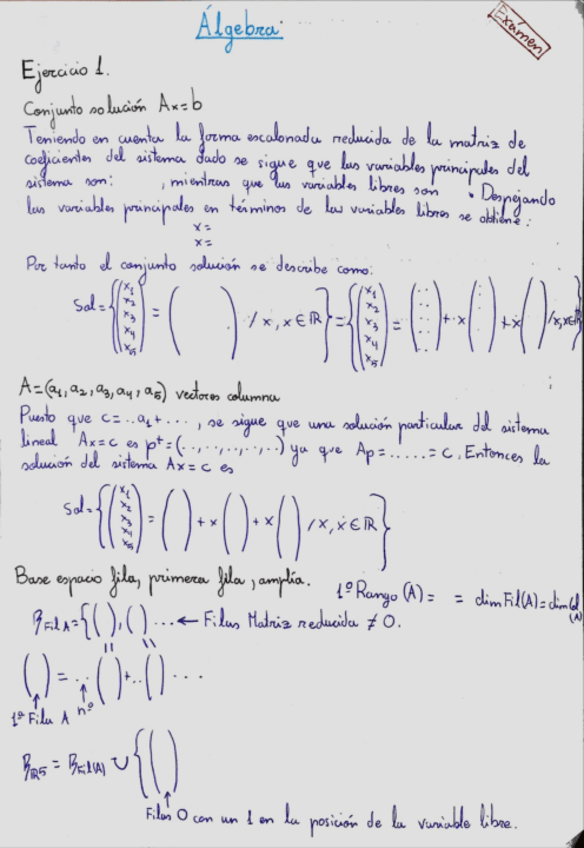 Álgebra
Exámen
Ejercicio 1.
Conjunto solución Ax=b
Teniendo en cuenta la forma escalonada reducida de la matriz de
coeficientes del sistema dado se sigue que las variables principales del
sistema son: , mientras que las variables libres son . Despejando
las variables principales en términos de las variables libres se obtiene:
x=
x=
Por tanto el conjunto solución se describe como:
Sol={(x1 x2 x3 x4 x5) = ( ) / x, x ∈ ℝ} = {(x1 x2 x3 x4 x5) = (: : :) + x(: :) + x( ) / x, x ∈ ℝ}
A=(a1, a2, a3, a4, a5) vectores columna
Puesto que c=..a1+..., se sigue que una solución particular del sistema
lineal Ax=c es pt=(..,..,..,..,..) ya que Ap=.....=c. Entonces la
solución del sistema Ax=c es
Sol={(x1 x2 x3 x4 x5) = ( ) + x( ) + x( ) / x, x ∈ ℝ}
Base espacio fila, primera fila, amplía.
1º Rango (A)= = dim Fil(A)=dim Col (A)
B Fil A={( ),( )... ← Filas Matriz reducida ≠ 0.
( ) = ..( )+..( )...
1ª Fila A nº
B ℝ5 = B Fil(A) ∪ {( )
Filas 0 con un 1 en la posición de la variable libre.